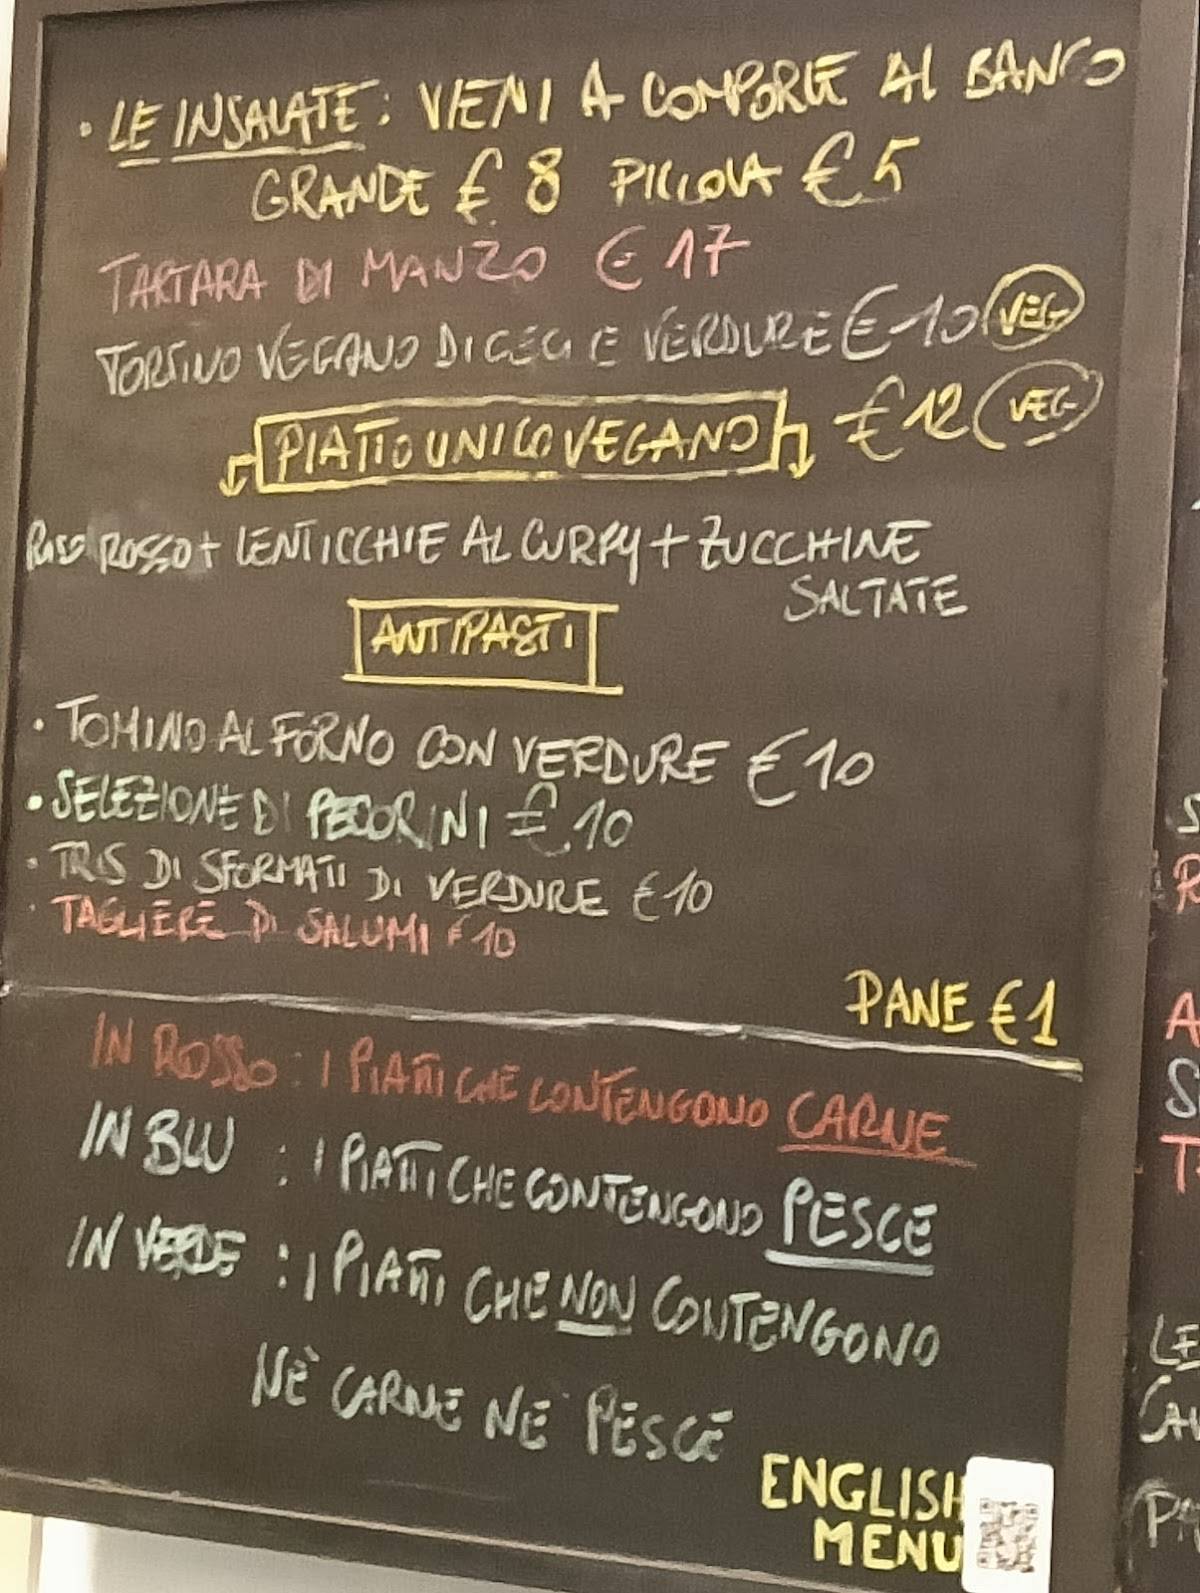 · LE INSALATE: VIENI A COMPORLE AL BANCO
GRANDE € 8 PICCOLA € 5
TARTARA DI MANZO € 17
TORTINO VEGANO DI CECI E VERDURE € 10 VEG
PIATTO UNICO VEGANO € 12 VEG
RISO ROSSO + LENTICCHIE AL CURRY + ZUCCHINE
SALTATE
ANTIPASTI
· TOMINO AL FORNO CON VERDURE € 10
· SELEZIONE DI PECORINI € 10
· TRIS DI SFORMATI DI VERDURE € 10
· TAGLIERE DI SALUMI € 10
PANE € 1
IN ROSSO: I PIATTI CHE CONTENGONO CARNE
IN BLU : I PIATTI CHE CONTENGONO PESCE
IN VERDE : I PIATTI CHE NON CONTENGONO
NÈ CARNE NÈ PESCE
ENGLISH
MENU